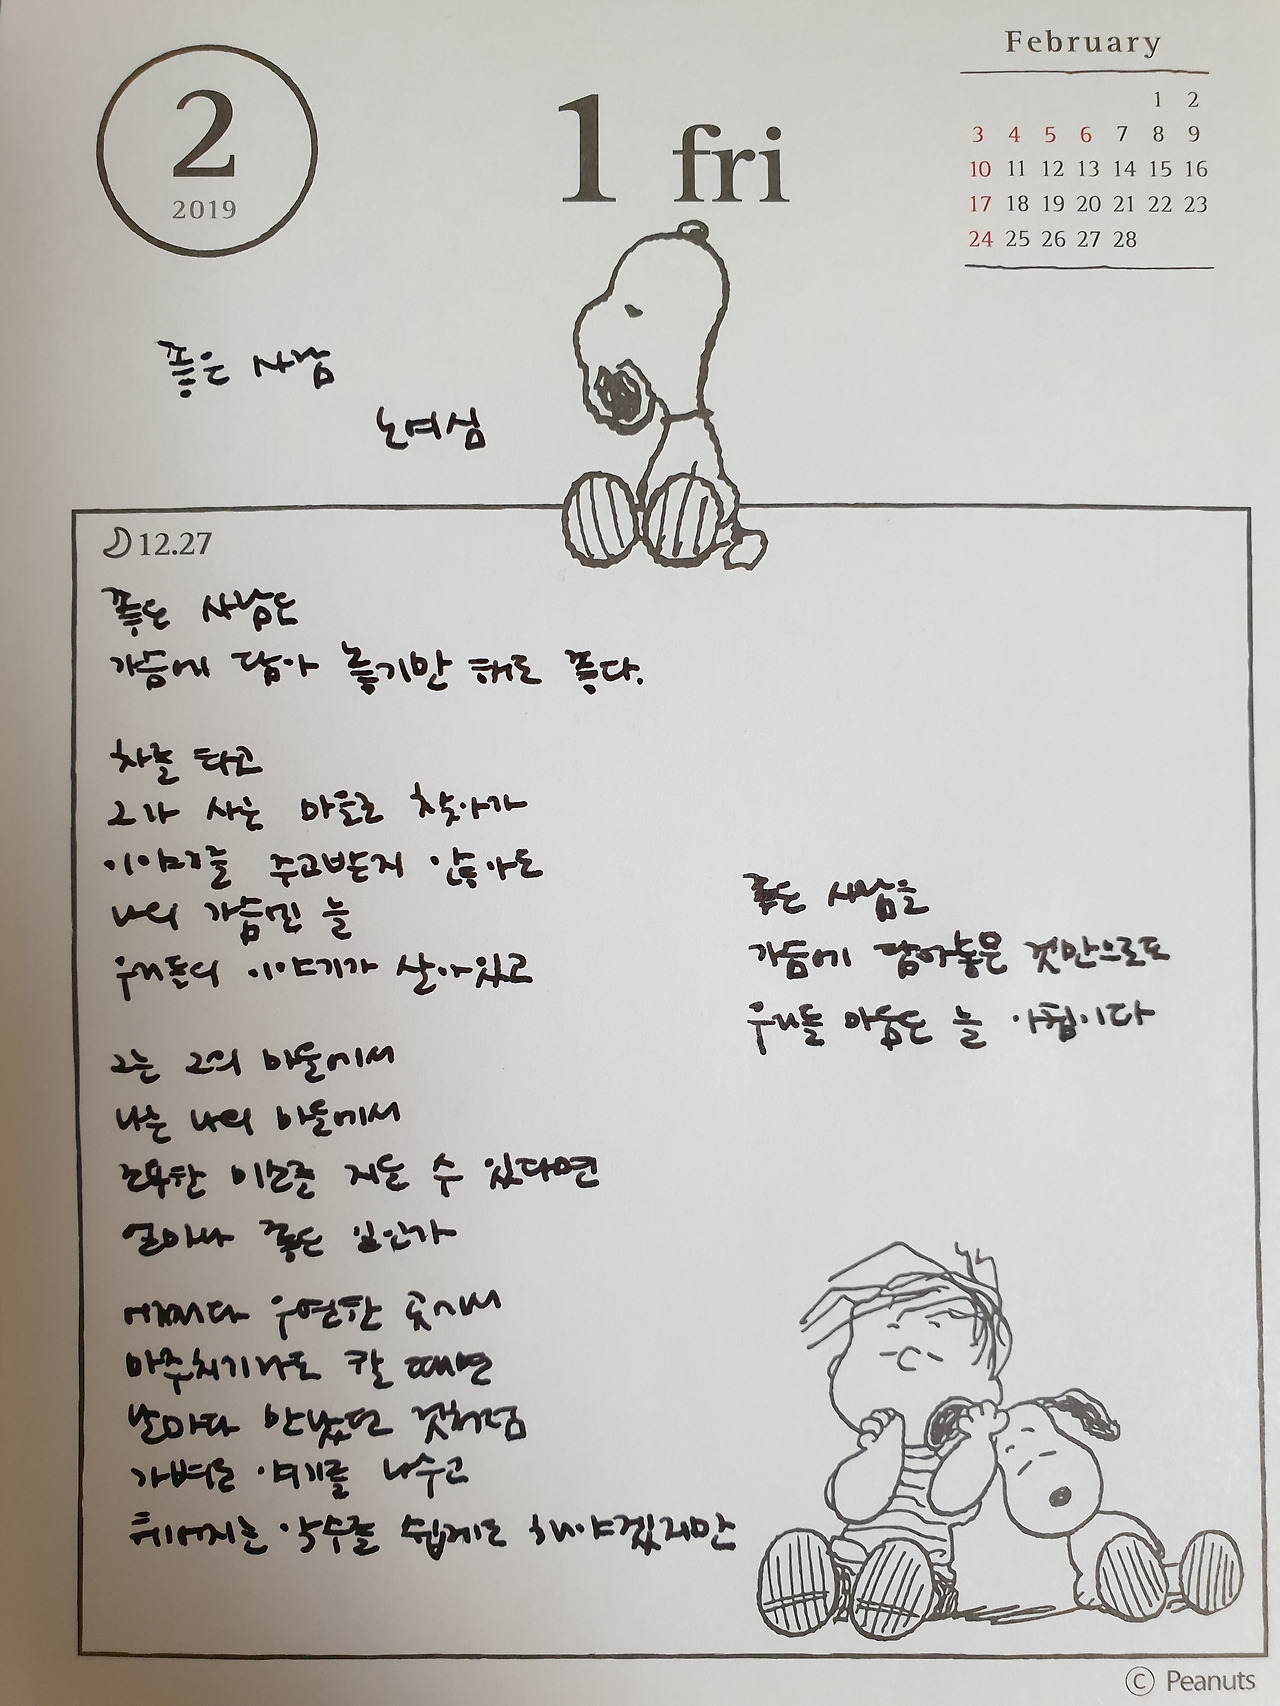 2
2019
1 fri
February
1 2
3 4 5 6 7 8 9
10 11 12 13 14 15 16
17 18 19 20 21 22 23
24 25 26 27 28
좋은 사람
노여심
12.27
좋은 사람은
가슴에 담아 놓기만 해도 좋다.
차를 타고
그가 사는 마을로 찾아가
이야기를 주고받지 않아도
나의 가슴엔 늘
우리들의 이야기가 살아있고
그는 그의 마을에서
나는 나의 마을에서
조용한 미소를 지을 수 있다면
얼마나 좋은 일인가
어쩌다 우연한 곳에서
마주치기라도 할 때면
날마다 만났던 것처럼
가벼운 얘기를 나누고
헤어지는 악수를 쉽게도 해야겠지만
좋은 사람을
가슴에 담아놓은 것만으로도
우리들 마음은 늘 아침이다
© Peanuts